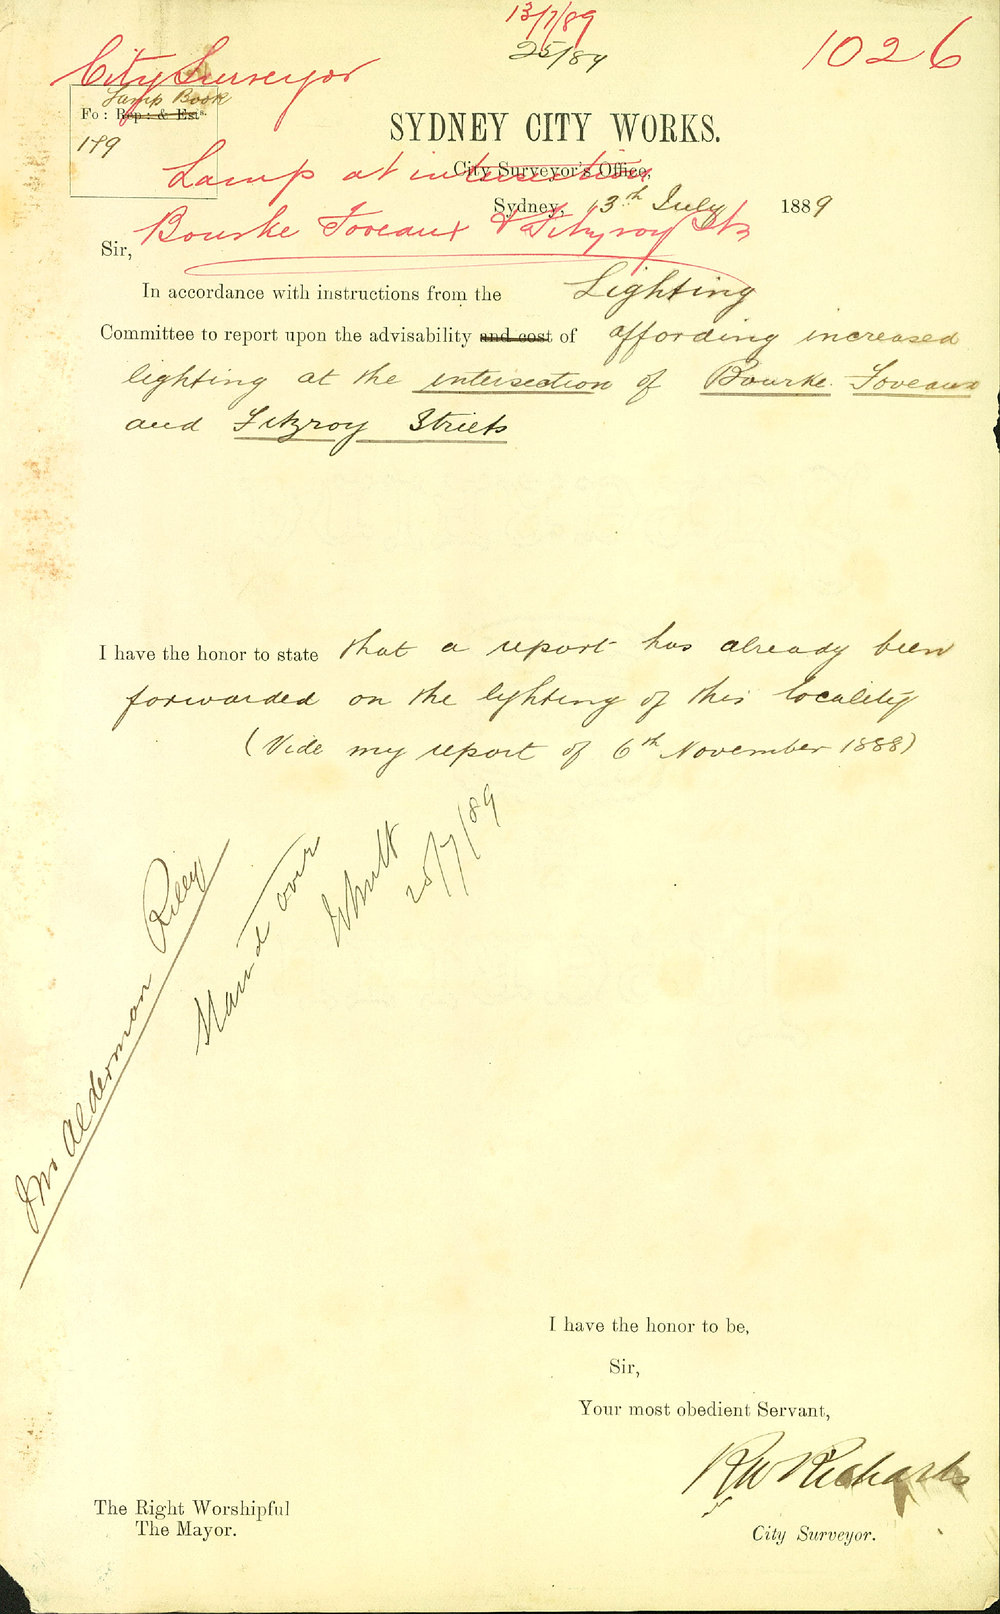 13/7/89
25/89
1026
City Surveyor
Lamp Book
Fo: Rep: & Ests.
189
SYDNEY CITY WORKS.
City Surveyor's Office,
Lamp at intersection
Sydney, 13th July 1889
Bourke Foveaux & Fitzroy Sts
Sir,
In accordance with instructions from the Lighting
Committee to report upon the advisability and cost of affording increased
lighting at the intersection of Bourke. Foveaux
and Fitzroy Streets
I have the honor to state that a report has already been
forwarded on the lighting of this locality
(Vide my report of 6th November 1888)
Alderman Riley
Stand over
25/7/89
I have the honor to be,
Sir,
Your most obedient Servant,
RW Richards
City Surveyor.
The Right Worshipful
The Mayor.